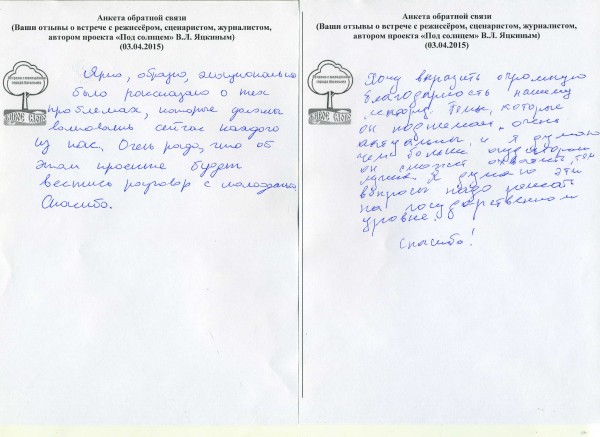 Анкета обратной связи
(Ваши отзывы о встрече с режиссёром, сценаристом, журналистом,
автором проекта «Под солнцем» В.Л. Яцкиным)
(03.04.2015)
Ярко, образно, эмоционально
было рассказано о тех
проблемах, которые должны
волновать сейчас каждого
из нас. Очень рада, что об
этом проекте будет
вестись разговор с молодежью.
Спасибо.
Анкета обратной связи
(Ваши отзывы о встрече с режиссёром, сценаристом, журналистом,
автором проекта «Под солнцем» В.Л. Яцкиным)
(03.04.2015)
Хочу выразить огромную
благодарность нашему
лектору. Темы, которые
он поднимает, очень
актуальны, и я думаю
чем больше аудиторию
он сможет охватить, тем
лучше. Я думаю эти
вопросы надо решать
на государственном
уровне.
Спасибо!